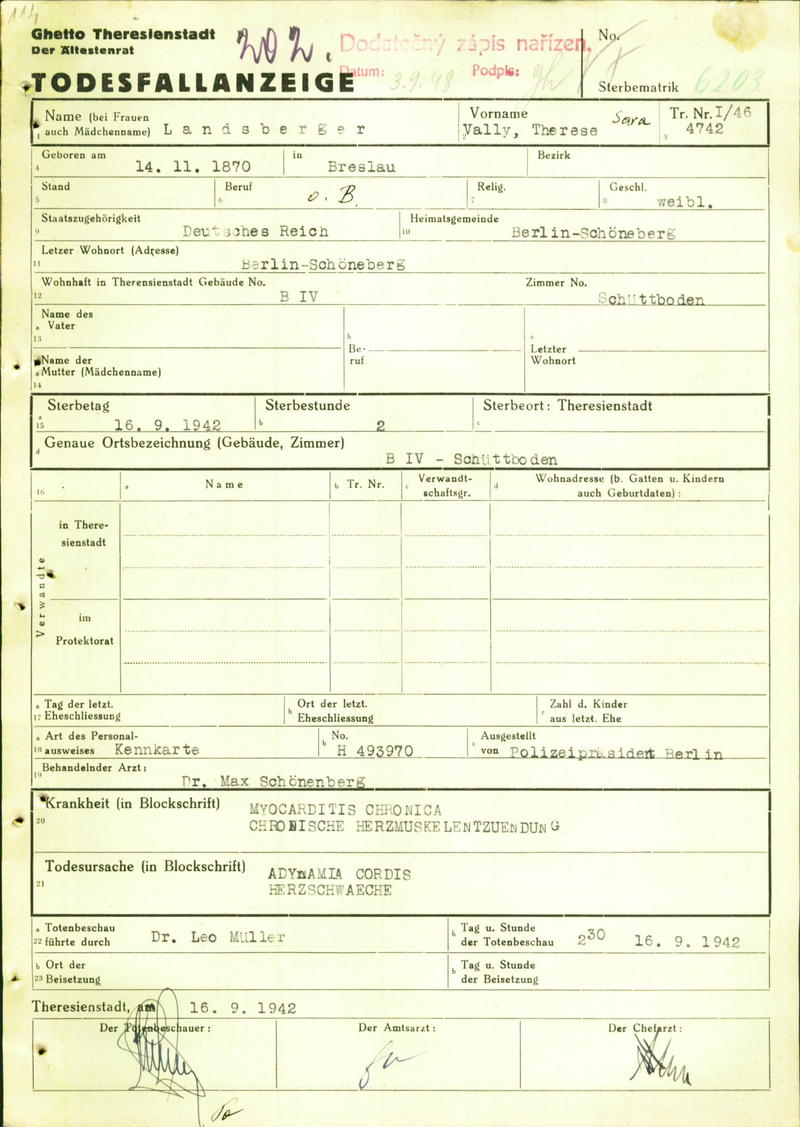 114
Ghetto Theresienstadt
Der Ältestenrat
202.
Dodatečný zápis nařízen.
Datum: 3.9.48 Podpis:
No.
TODESFALLANZEIGE
Sterbematrik 6203
Name (bei Frauen
1 auch Mädchenname) Landsberger
Vorname Sara
2 Vally, Therese
Tr. Nr. I/46
3 4742
Geboren am
4 14. 11. 1870 in Breslau Bezirk
Stand
5
Beruf
6 o. B.
Relig.
7
Geschl.
8 weibl.
Staatszugehörigkeit
9 Deutsches Reich
Heimatsgemeinde
10 Berlin-Schöneberg
Letzer Wohnort (Adresse)
11 Berlin-Schöneberg
Wohnhaft in Therensienstadt Gebäude No.
12 B IV
Zimmer No.
Schüttboden
Name des
a Vater
13
Name der
a Mutter (Mädchenname)
14
b
Be-
ruf
c
Letzter
Wohnort
Sterbetag
a
15 16. 9. 1942
Sterbestunde
b 2
Sterbeort: Theresienstadt
c
d Genaue Ortsbezeichnung (Gebäude, Zimmer)
B IV - Schüttboden
16
a Name
b Tr. Nr.
c Verwandt-
schaftsgr.
d Wohnadresse (b. Gatten u. Kindern
auch Geburtdaten) :
Verwandte
in There-
sienstadt
im
Protektorat
a Tag der letzt.
17 Eheschliessung
b Ort der letzt.
Eheschliessung
c Zahl d. Kinder
aus letzt. Ehe
a Art des Personal-
18 ausweises Kennkarte
b No.
H 493970
c Ausgestellt
von Polizeipräsident Berlin
Behandelnder Arzt :
19 Dr. Max Schönenberg
Krankheit (in Blockschrift)
20
MYOCARDITIS CHRONICA
CHRONISCHE HERZMUSKELENTZUENDUNG
Todesursache (in Blockschrift)
21
ADYnAMIA CORDIS
HERZSCHWAECHE
a Totenbeschau
22 führte durch Dr. Leo Müller
b Tag u. Stunde
der Totenbeschau 2 30 16. 9. 1942
b Ort der
23 Beisetzung
b Tag u. Stunde
der Beisetzung
Theresienstadt, am 16. 9. 1942
Der Totenbeschauer :
Der Amtsarzt :
Der Chefarzt :